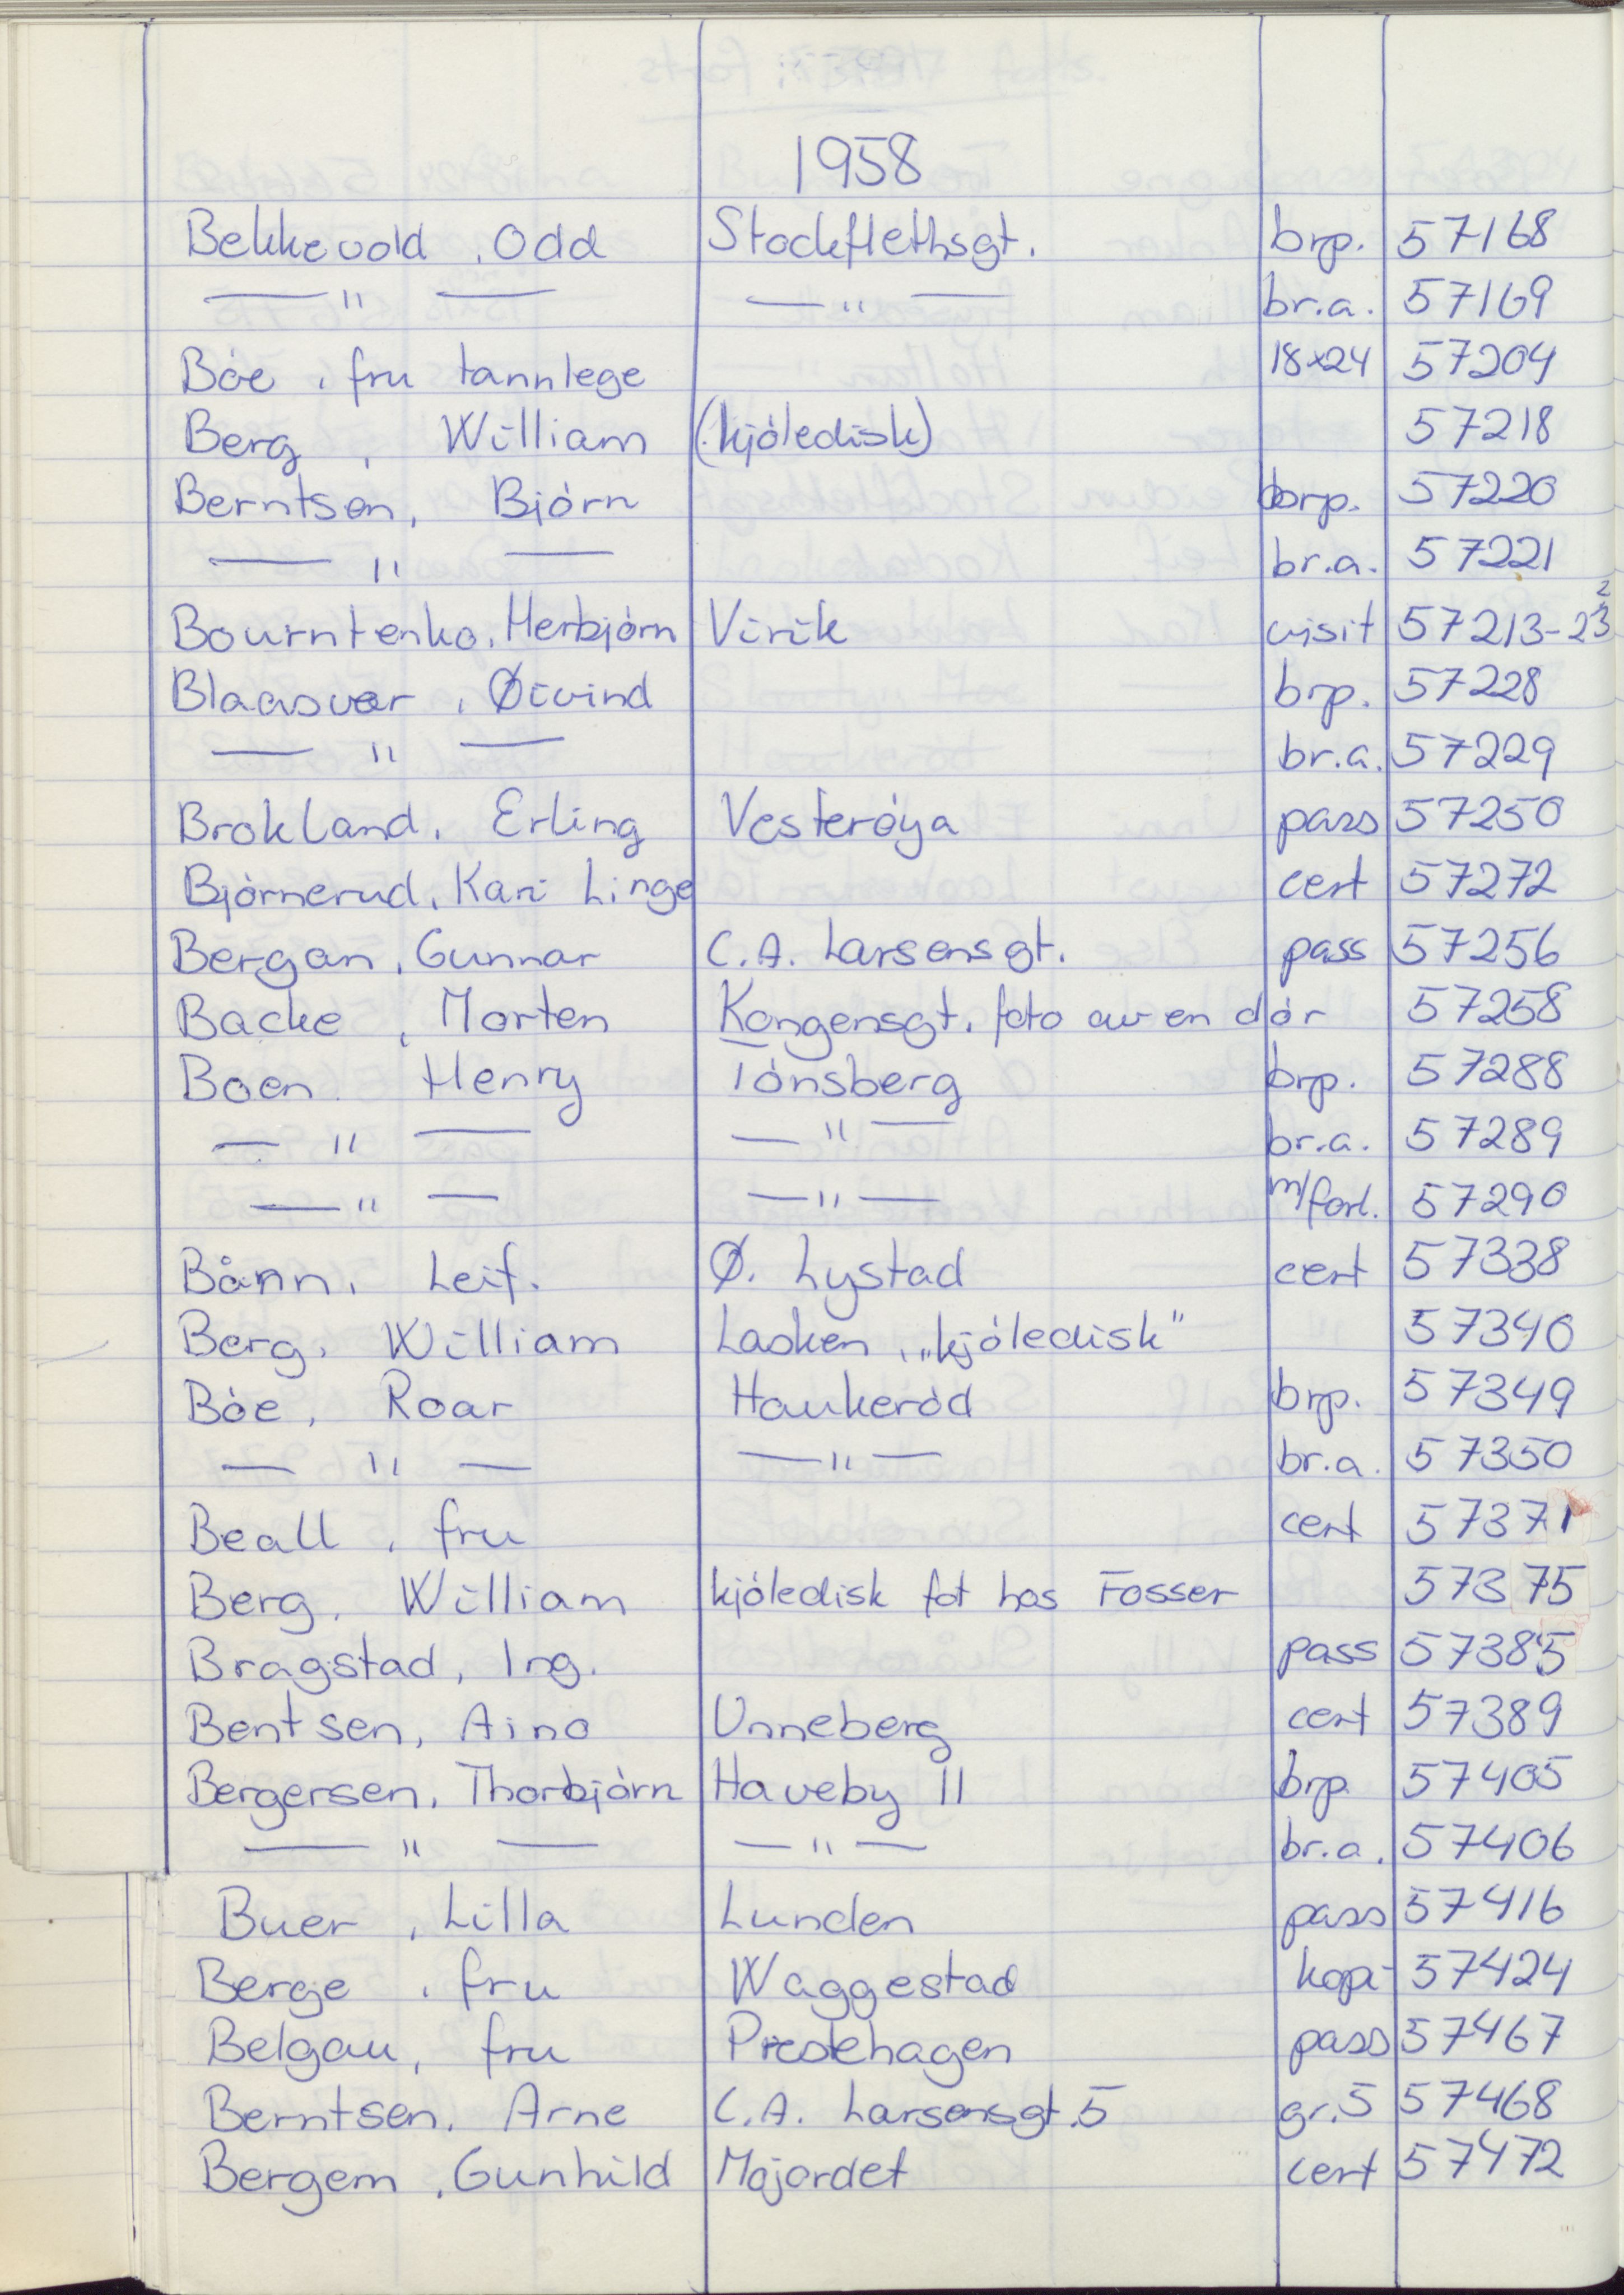 1958
Bekkevold, Odd Stockflethsgt. brp. 57168
— " — — " — br.a. 57169
Bóe, fru tannlege 18x24 57204
Berg, William (kjóledisk) 57218
Berntsen, Bjórn brp. 57220
— " — br.a. 57221
Bourntenko, Herbjórn Virik visit 57213-23
Blaasvær, Øivind brp. 57228
— " — br.a. 57229
Brokland, Erling Vesteróya pass 57250
Bjórnerud, Kari Linge cert 57272
Bergan, Gunnar C.A. Larsensgt. pass 57256
Backe, Morten Kongensgt. foto av en dór 57258
Boen Henry Tónsberg brp. 57288
— " — — " — br.a. 57289
— " — — " — m/forl. 57290
Bånn, Leif. Ø. Lystad cert 57338
Berg, William Lasken, „kjóledisk" 57340
Bóe, Roar Haukeród brp. 57349
— " — — " — br.a. 57350
Beall, fru cert 57371
Berg, William kjóledisk fot hos Fosser 57375
Bragstad, Ing. pass 57385
Bentsen, Aino Unneberg cert 57389
Bergersen, Thorbjórn Haveby 11 brp. 57405
— " — — " — br.a. 57406
Buer, Lilla Lunden pass 57416
Berge, fru Waggestad kopi 57424
Belgau, fru Prestehagen pass 57467
Berntsen, Arne C.A. Larsensgt. 5 gr. 5 57468
Bergem, Gunhild Mojordet cert 57472